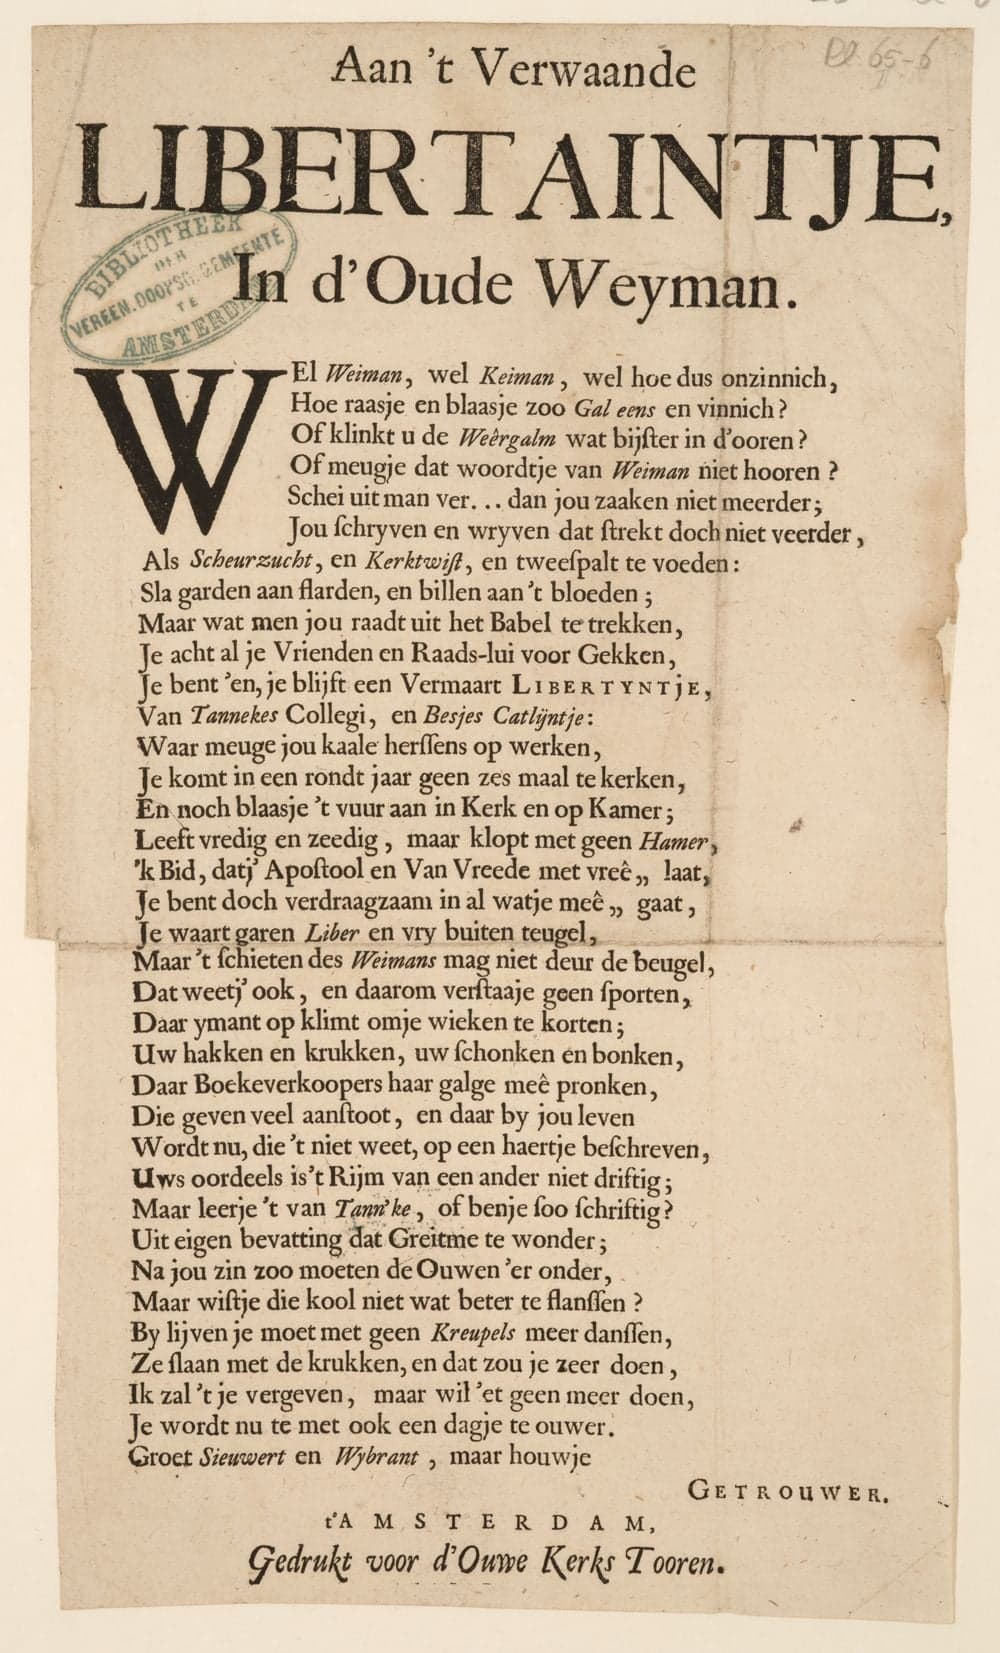 Pl. 65-6
Aan 't Verwaande
LIBERTAINTJE,
In d'Oude Weyman.
BIBLIOTHEEK
DER
VEREEN. DOOPSG. GEMEENTE
TE
AMSTERDAM
WEl Weiman, wel Keiman, wel hoe dus onzinnich,
Hoe raasje en blaasje zoo Gal eens en vinnich?
Of klinkt u de Weêrgalm wat bijſter in d'ooren?
Of meugje dat woordtje van Weiman niet hooren?
Schei uit man ver... dan jou zaaken niet meerder;
Jou ſchryven en wryven dat ſtrekt doch niet veerder,
Als Scheurzucht, en Kerktwiſt, en tweeſpalt te voeden:
Sla garden aan flarden, en billen aan 't bloeden;
Maar wat men jou raadt uit het Babel te trekken,
Je acht al je Vrienden en Raads-lui voor Gekken,
Je bent 'en, je blijft een Vermaart LIBERTYNTjE,
Van Tannekes Collegi, en Besjes Catlijntje:
Waar meuge jou kaale herſſens op werken,
Je komt in een rondt jaar geen zes maal te kerken,
En noch blaasje 't vuur aan in Kerk en op Kamer;
Leeft vredig en zeedig, maar klopt met geen Hamer,
'k Bid, datj' Apoſtool en Van Vreede met vreê„ laat,
Je bent doch verdraagzaam in al watje meê„ gaat,
Je waart garen Liber en vry buiten teugel,
Maar 't ſchieten des Weimans mag niet deur de beugel,
Dat weetj' ook, en daarom verſtaaje geen ſporten,
Daar ymant op klimt omje wieken te korten;
Uw hakken en krukken, uw ſchonken en bonken,
Daar Boekeverkoopers haar galge meê pronken,
Die geven veel aanſtoot, en daar by jou leven
Wordt nu, die 't niet weet, op een haertje beſchreven,
Uws oordeels is't Rijm van een ander niet driftig;
Maar leerje 't van Tann'ke, of benje ſoo ſchriftig?
Uit eigen bevatting dat Greitme te wonder;
Na jou zin zoo moeten de Ouwen 'er onder,
Maar wiſtje die kool niet wat beter te flanſſen?
By lijven je moet met geen Kreupels meer danſſen,
Ze ſlaan met de krukken, en dat zou je zeer doen,
Ik zal 't je vergeven, maar wil 'et geen meer doen,
Je wordt nu te met ook een dagje te ouwer.
Groet Sieuwert en Wybrant, maar houwje
GETROUWER.
t'AMSTERDAM,
Gedrukt voor d'Ouwe Kerks Tooren.